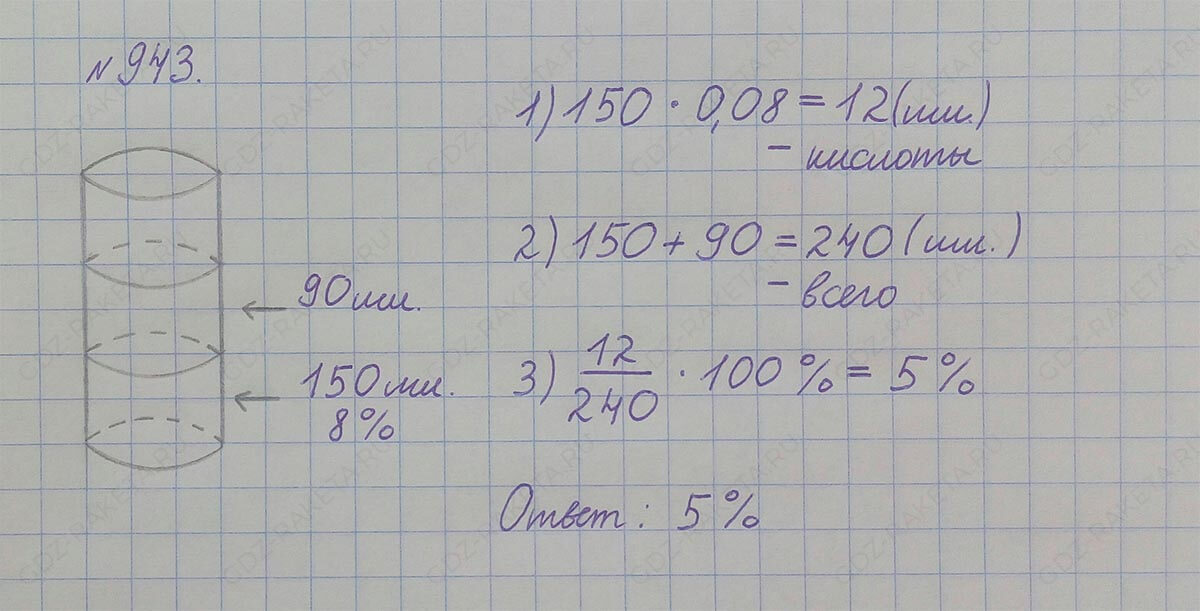 №943.
90мл.
150мл.
8%
1) 150 · 0,08 = 12 (мл.)
- кислоты
2) 150 + 90 = 240 (мл.)
- всего
3) 12/240 · 100% = 5%
Ответ: 5%
GDZ-RAKETA.RU